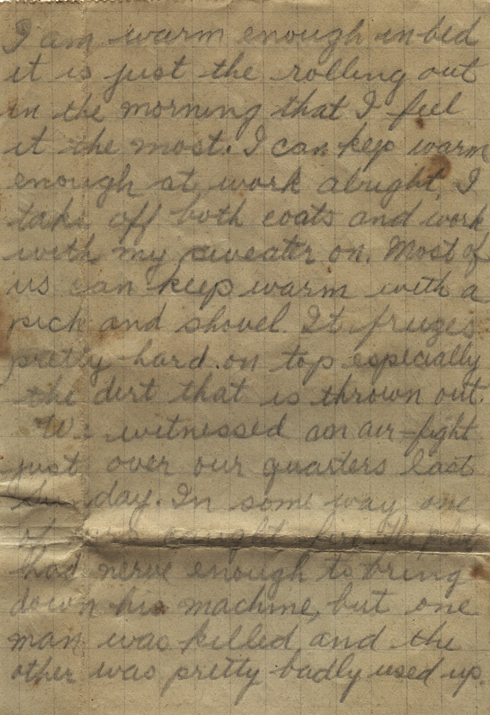 I am warm enough in bed
it is just the rolling out
in the morning that I feel
it the most. I can kep warm
enough at work alright. I
take off both coats and work
with my sweater on. Most of
us can keep warm with a
pick and shovel. It friezes
pretty hard on top especially
the dirt that is thrown out.
We witnessed an air-fight
just over our quarters last
Sunday. In some way one
caught fire the pilot
had nerve enough to bring
down his machine, but one
man was killed and the
other was pretty badly used up.